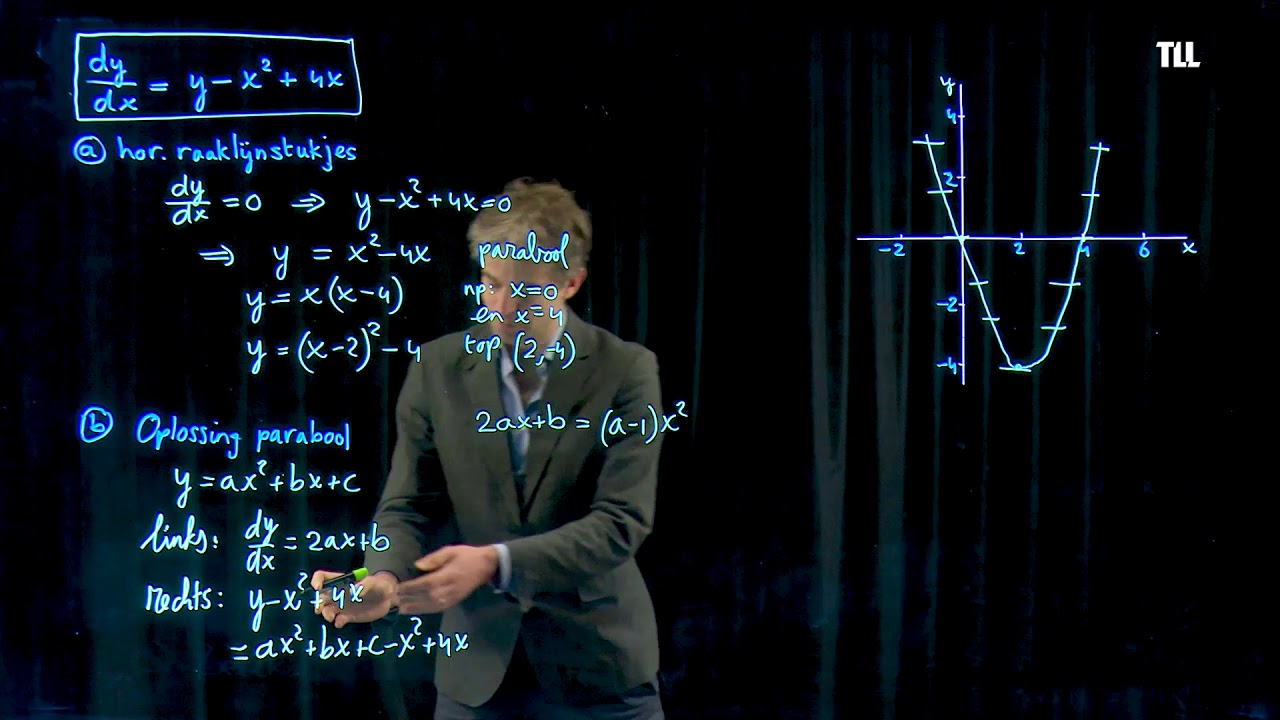 dy/dx = y - x² + 4x
ⓐ hor. raaklijnstukjes
dy/dx = 0 ⇒ y-x²+4x=0
⇒ y = x²-4x parabool
y = x(x-4) np: x=0
en x=4
y = (x-2)² - 4 top (2,-4)
ⓑ Oplossing parabool
y = ax²+bx+c
links: dy/dx = 2ax+b
rechts: y-x²+4x
= ax²+bx+c-x²+4x
2ax+b = (a-1)x²
TLL
y
4
2
-2 2 4 6 x
-2
-4